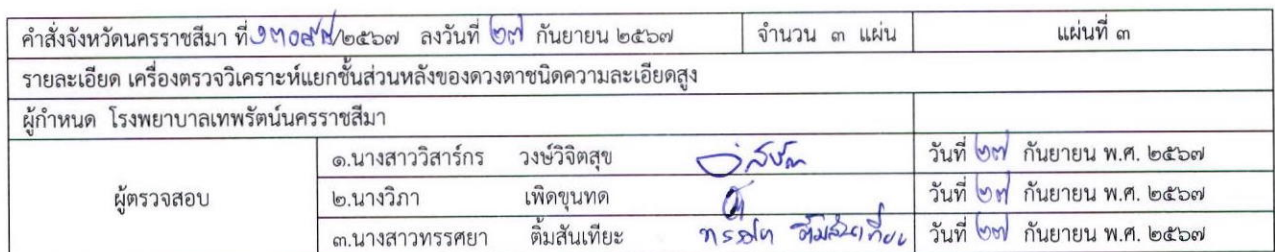 คำสั่งจังหวัดนครราชสีมา ที่ /๒๕๖๗ ลงวันที่ ๒๗ กันยายน ๒๕๖๗ จำนวน ๓ แผ่น แผ่นที่ ๓
รายละเอียด เครื่องตรวจวิเคราะห์แยกชั้นส่วนหลังของดวงตาชนิดความละเอียดสูง
ผู้กำหนด โรงพยาบาลเทพรัตน์นครราชสีมา
ผู้ตรวจสอบ
๑.นางสาววิสาร์กร วงษ์วิจิตสุข วันที่ ๒๗ กันยายน พ.ศ. ๒๕๖๗
๒.นางวิภา เพิดขุนทด วันที่ ๒๗ กันยายน พ.ศ. ๒๕๖๗
๓.นางสาวทรรศยา ติ้มสันเทียะ ทรรศยา ติ้มสันเทียะ วันที่ ๒๗ กันยายน พ.ศ. ๒๕๖๗